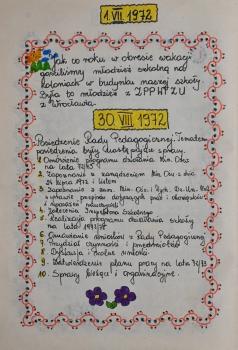 1. VII. 1972
Jak co roku w okresie wakacji
gościliśmy młodzież szkolną na
koloniach w budynku naszej szkoły.
Była to młodzież z ZPPWPZU
z Wrocławia.
30. VIII. 1972
Posiedzenie Rady Pedagogicznej. Tematem
posiedzenia były następujące sprawy:
1. Omówienie programu działania Min. Ośw.
na lata 72/75
2. Zapoznanie z zarządzeniem Min Ośw z dnia
24 lipca 1972
3. Zapoznanie z Min. Ośw. i
w sprawie przepisów dotyczących praw i obowiązków
nauczycieli
4. Zalecenia Inspektora Szkolnego
5. Realizacja programu działania szkoły
na lata 1972/
6. Omówienie wniosków z Rady Pedagogicznej
7. Przydział czynności i przedmiotów
8. Dyskusja i wolne wnioski.
9. Zatwierdzenie planu pracy na lata 72/73
10. Sprawy bieżące i organizacyjne.